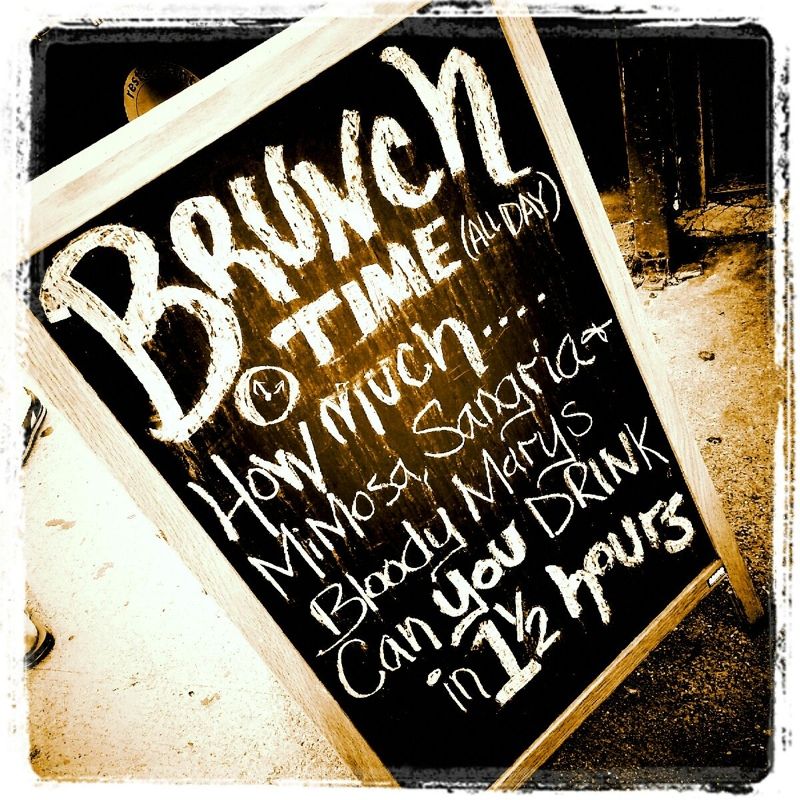 rest
BRUNCH
TIME (ALL DAY)
HOW MUCH....
MiMosa, Sangria +
Bloody Marys
Can you DRINK
in 1 1/2 hours